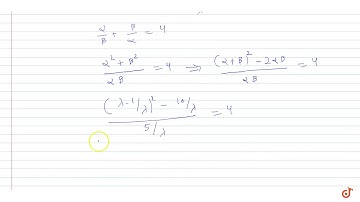 α/β + β/α = 4
α² + β² / αβ = 4 ⇒ (α+β)² - 2αβ / αβ = 4
(λ-1/λ)² - 10/λ / 5/λ = 4